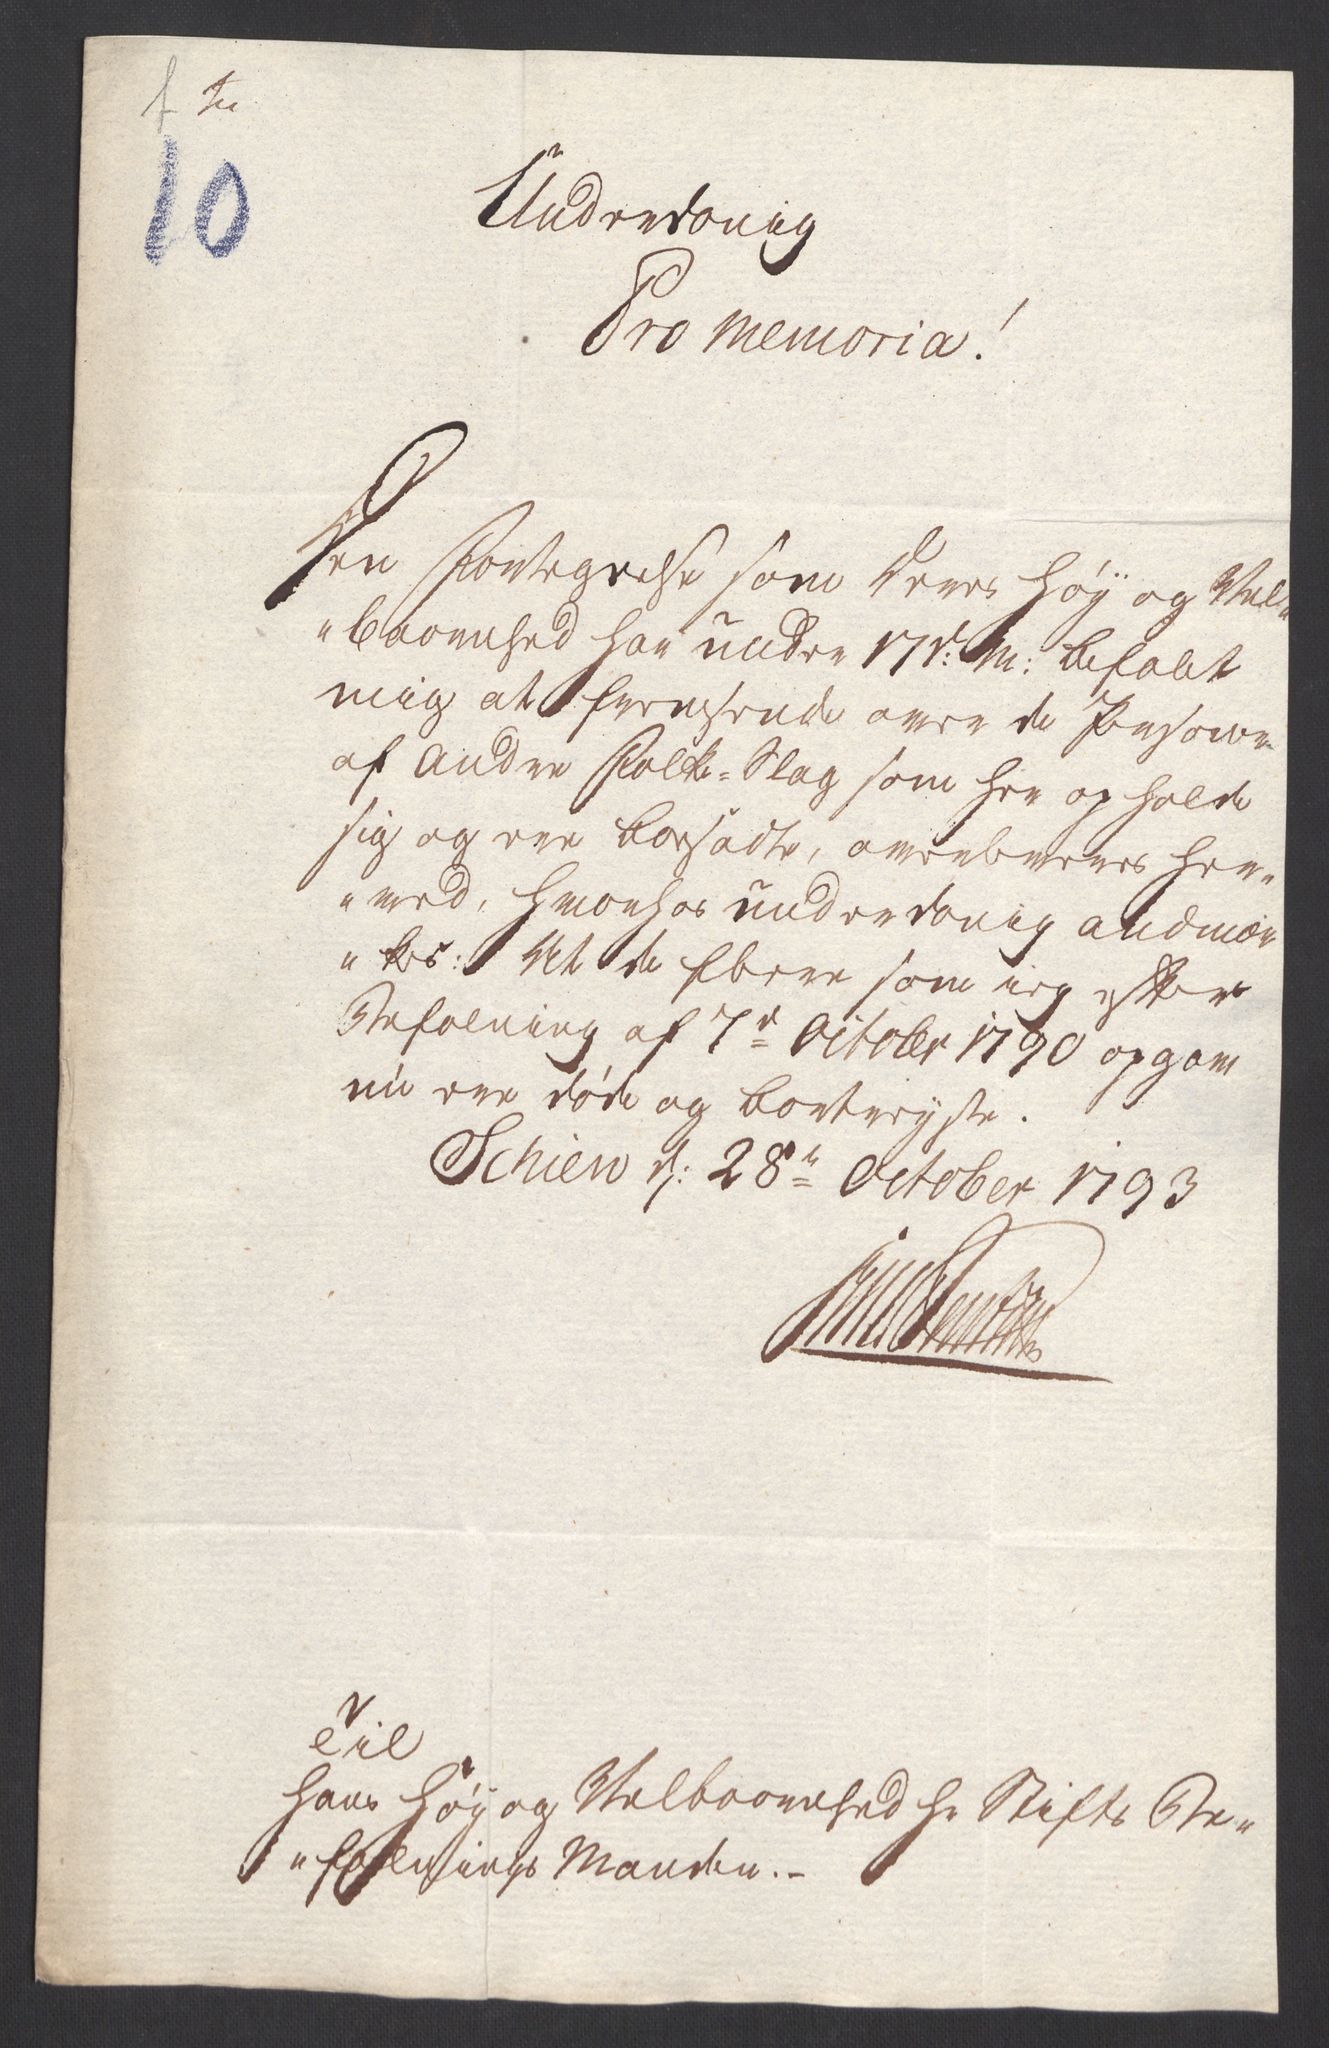 10
Underdanig
Pro Memoria!
Den Fortegnelse som Deres Høy og Vel„
„baarenhed har under 17d: M: befalet
mig at fremsende over de Persone
af andre Folke-Slag som her opholde
sig og ere bosadte, overleveres her„
„ved, hvorhos underdanig anmær„
„kes: At de fleere som ieg efter
Befalning af 7d October 1790 opgav
nu ere døde og bortreyste.
Schien d: 28n October 1793
Til
Hans Høy og Velbaarenhed Hr Stifts Be„
„falnings Manden.-